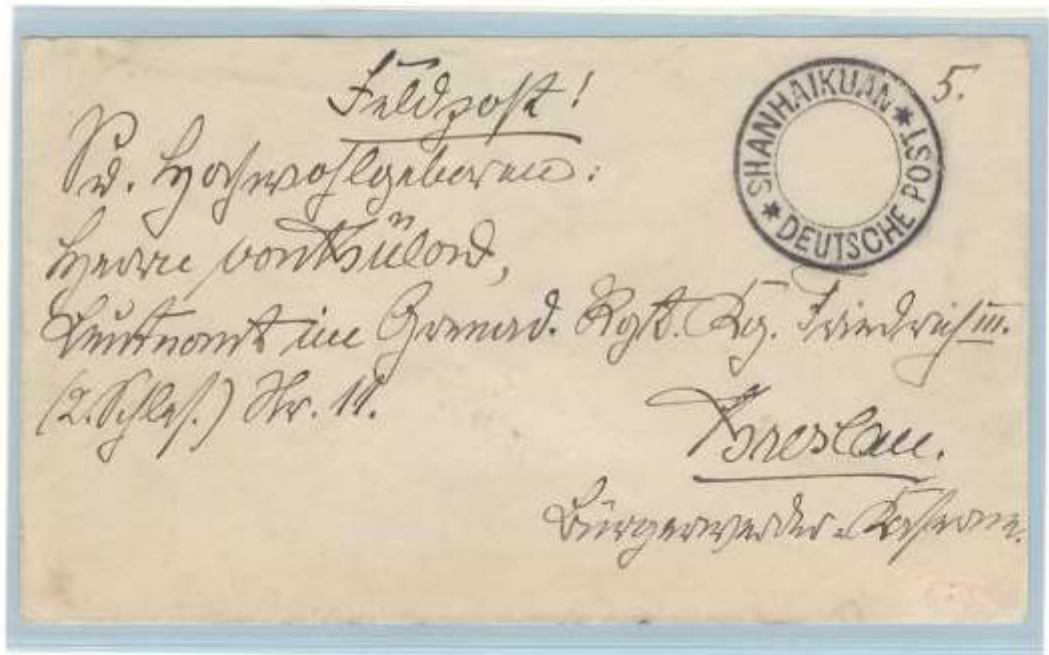 Feldpost!
SHANHAIKUAN
* DEUTSCHE POST *
5.
Sr. Hochwohlgeboren:
Herrn von
Leutnant im Grenad. Rgt. Kg. Friedrich III.
(2. Schles.) Nr. 11.
Breslau.
Bürgerwerder-Kaserne.